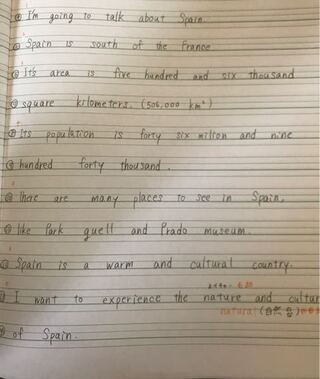 I'm going to talk about Spain
Spain is south of the France
It's area is five hundred and six thousand
square kilometers. (506,000 km²)
Its population is forty six milion and nine
hundred forty thousand.
There are many places to see in Spain,
like Park guell and Prado museum.
Spain is a warm and cultural country.
I want to experience the nature and cultur
natural (自然な)
of Spain.